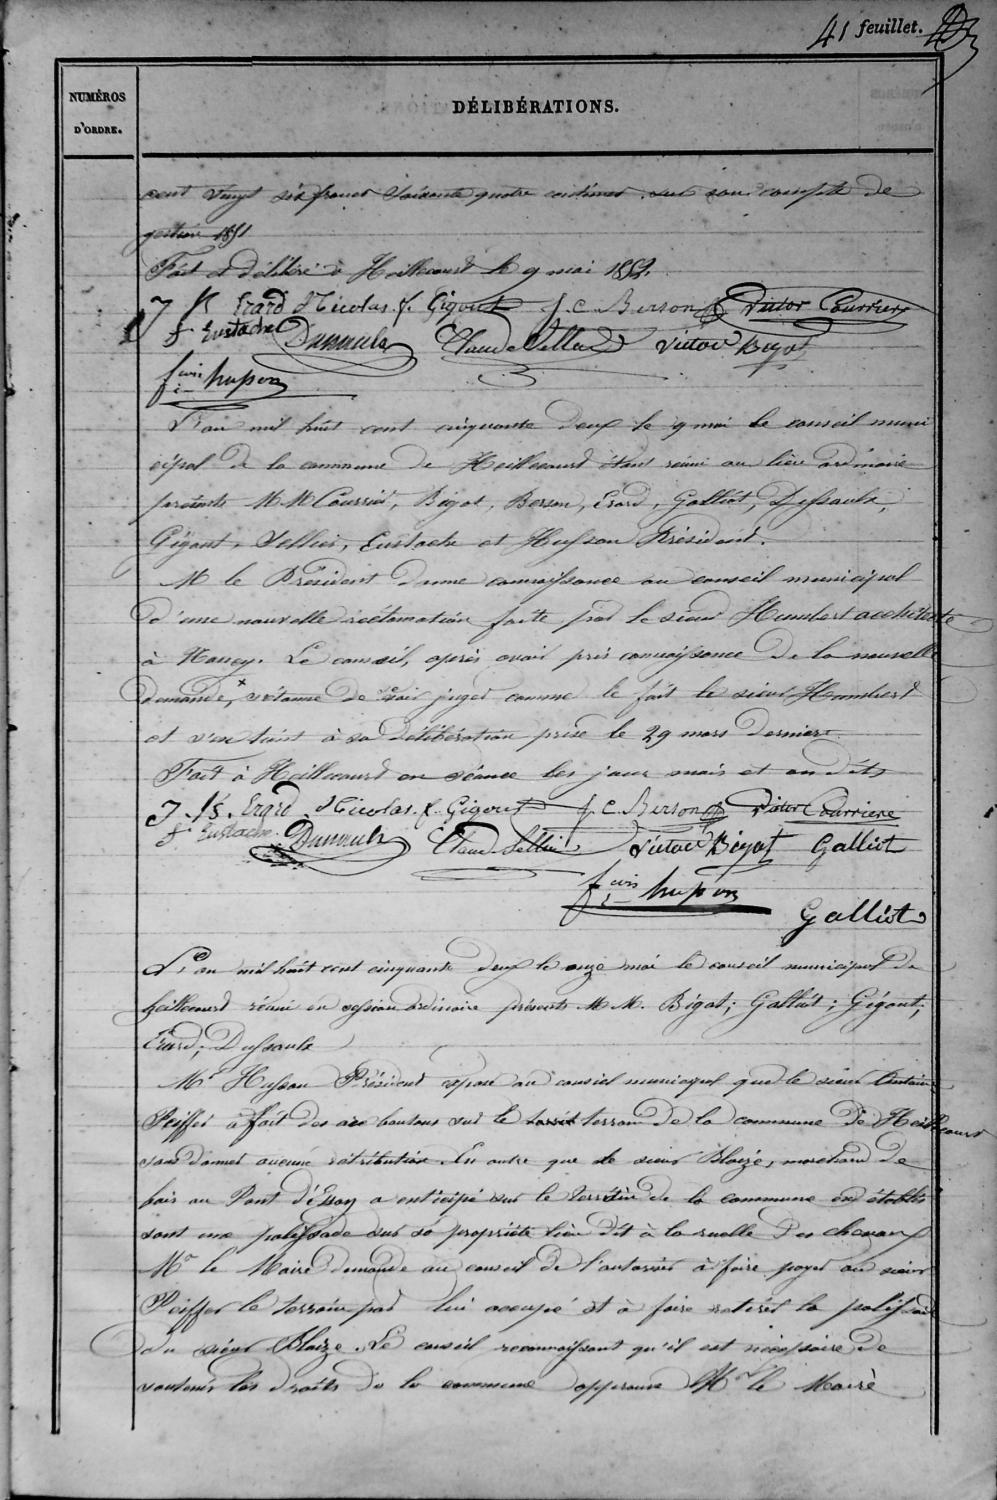 41 feuillet.
NUMÉROS
D'ORDRE.
DÉLIBÉRATIONS.
cent vingt six francs soixante quatre centimes sur son compte de
gestion 1851
Fait et délibéré à Heillecourt le 9 mai 1852.
J N Erard Nicolas. f. Gigout J. C. Berson Victor Courrier
f. Eustache Claude Sellier Victor Bigot
fçois husson
L'an mil huit cent cinquante deux le 9 mai le conseil muni
cipal de la commune de Heillecourt étant réuni au lieu ordinaire
présents M. M Courrier, Bigot, Berson, Erard, Galliot, Dussaulx,
Gigout, Sellier, Eustache et Husson Président.
M le Président donne connaissance au conseil municipal
d'une nouvelle réclamation faite par le sieur Humbert architecte
à Nancy. Le conseil, après avoir pris connaissance de la nouvelle
demande, x de voir juger comme le fait le sieur Humbert
et s'en tient à sa délibération prise le 29 mars dernier.
Fait à Heillecourt en séance les jour mois et an dits
J. N. Erard Nicolas. f. Gigout J. C. Berson Victor Courrier
f. Eustache Claude Sellier Victor Bigot Galliot
fçois husson
Galliot
L'an mil huit cent cinquante deux le onze mai le conseil municipal de
heillecourt réuni en session ordinaire présents M M. Bigot; Galliot; Gigout;
Erard; Dussaulx
Mr Husson Président expose au conseil municipal que le sieur Antoine
Peiffer a fait des sur le terrain de la commune de Heillecourt
sans donner aucune rétribution. En outre que le sieur Blaize, marchand de
bois au Pont d'Essey a enticipé sur le terrain de la commune en établis
sant une palissade sur sa propriété lieu dit à la ruelle
Mr le Maire demande au conseil de l'autoriser à faire payer au sieur
Peiffer le terrain par lui occupé et à faire retirer la palissade
du sieur Blaize. Le conseil reconnaissant qu'il est nécessaire de
soutenir les droits de la commune approuve Mr le Maire